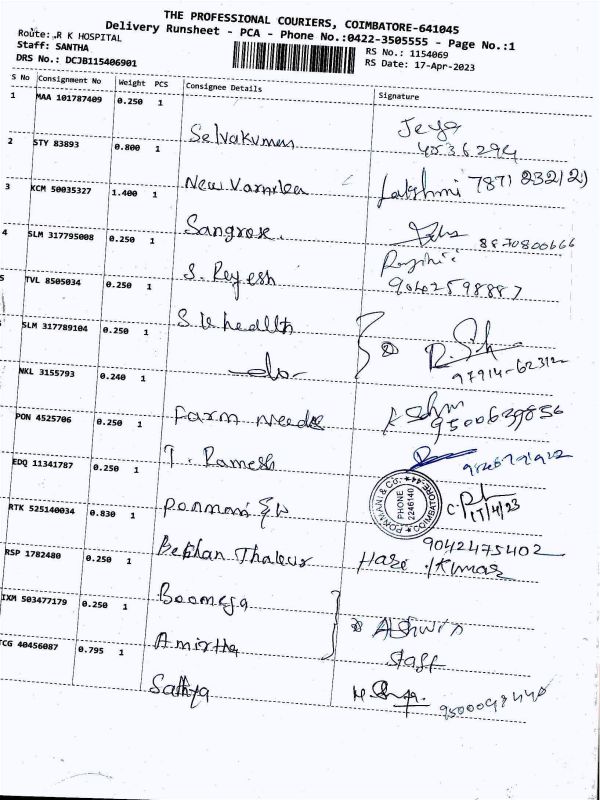 THE PROFESSIONAL COURIERS, COIMBATORE-641045
Delivery Runsheet - PCA - Phone No.:0422-3505555 - Page No.:1
Route: R K HOSPITAL
Staff: SANTHA
DRS No.: DCJB115406901
RS No.: 1154069
RS Date: 17-Apr-2023
S No Consignment No Weight PCS Consignee Details Signature
1 MAA 101787409 0.250 1
Selvakumar Jeya
2 STY 83893 0.800 1
New Lakshmi 7871 232121
3 KCM 50035327 1.400 1
Sangrose. 8870800666
4 SLM 317795008 0.250 1
S. Rejesh
9042598887
5 TVL 8505034 0.250 1
S K health
SLM 317789104 0.250 1
-do-
97914-62312
NKL 3155793 0.240 1
Farm needs 9500639856
PON 4525706 0.250 1
T. Ramesh
EDQ 11341787 0.250 1
Ponmani &
PONMANI & CO.
PHONE
2246140
COIMBATORE-44
17/4/23
RTK 525140034 0.830 1
9042475402
Thakur Hare Kumar
RSP 1782480 0.250 1
Boomega
IXM 503477179 0.250 1
Amirtha Ashwin
Staff
TCG 40456087 0.795 1
Sathya